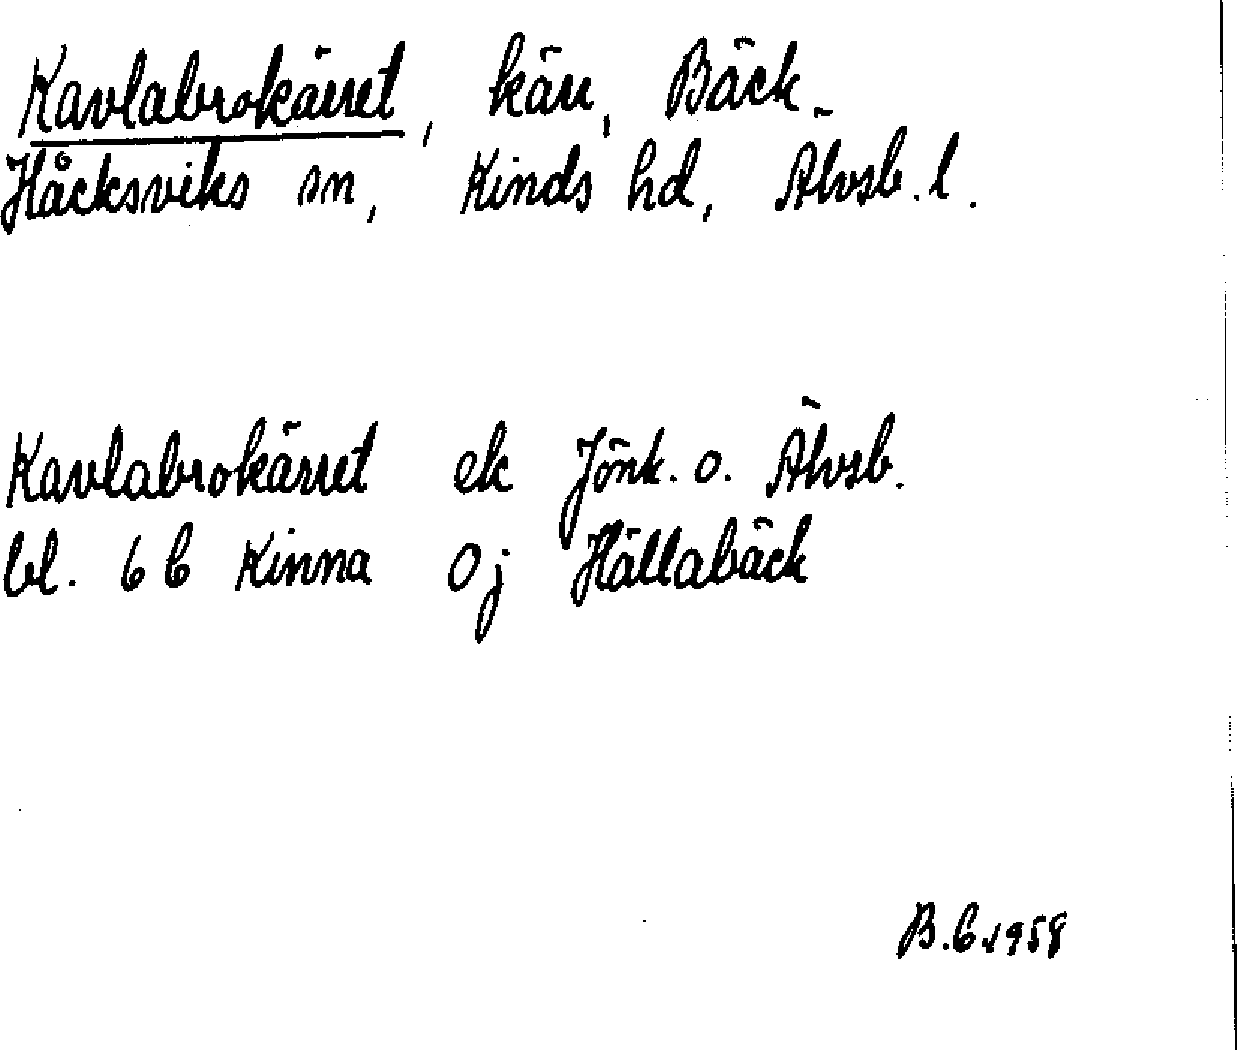 Kavlabrokärret, kärr, Bäck-
Håcksviks sn, Kinds hd, Älvsb. l.
Kavlabrokärret ek Jönk. o. Älvsb.
bl. 6 b Kinna Oj Hällabäck
B.G. 1958